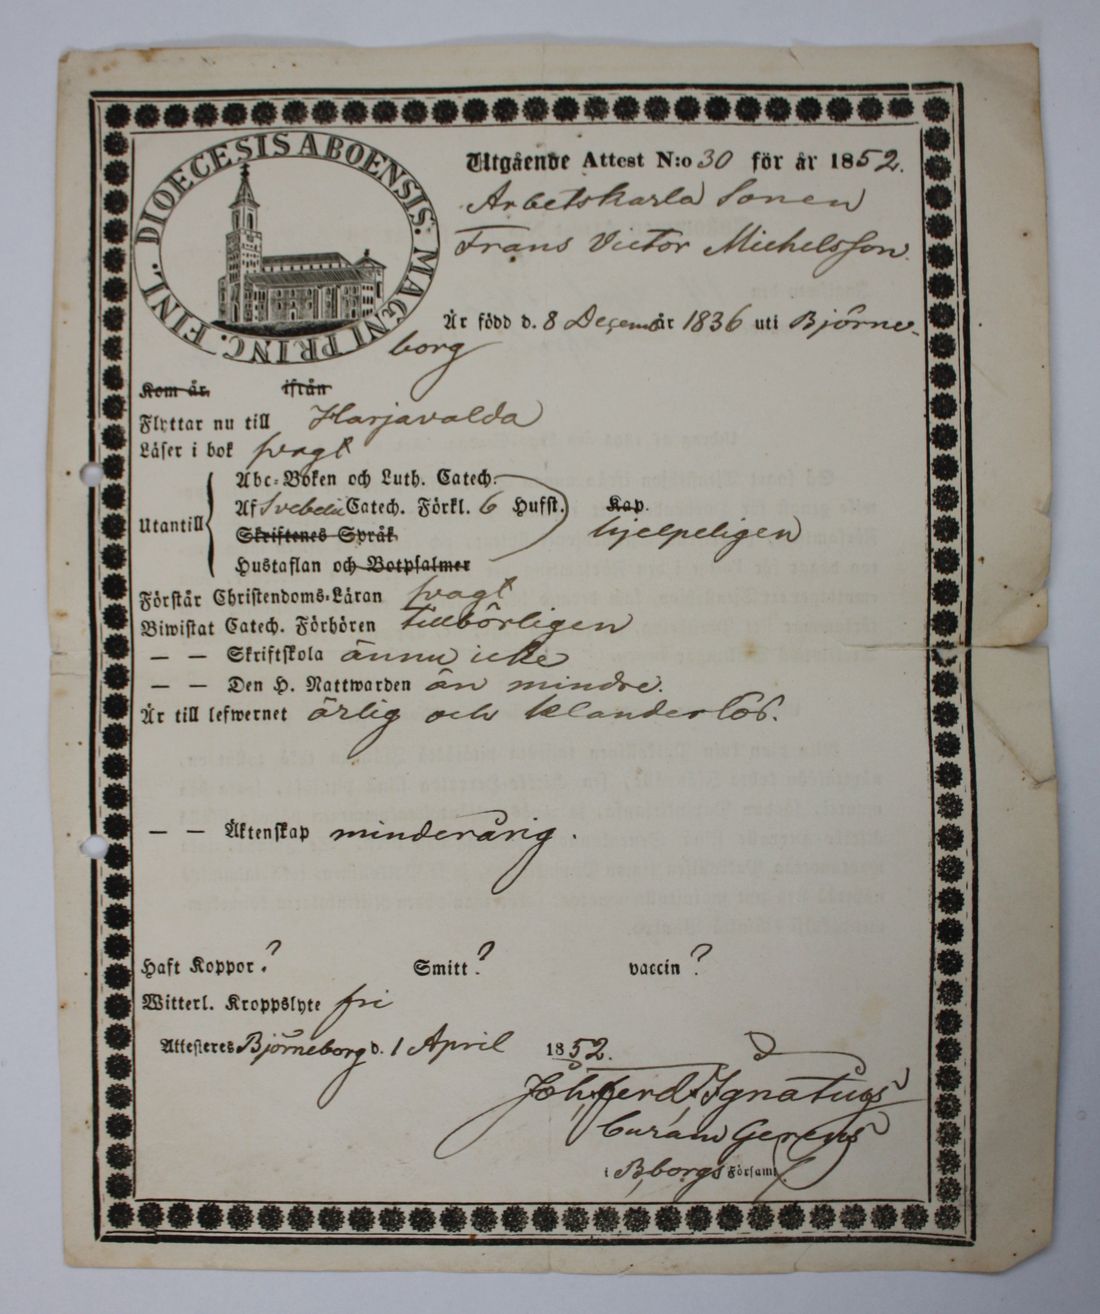 DIOECESIS ABOENSIS. MAGNI PRINC. FINL.
Utgående Attest N:o 30 för år 1852.
Arbetskarls Sonen
Frans Victor Michelsson
Är född d. 8 Decembr år 1836 uti Björne-
borg
Kom år. ifrån
Flyttar nu till Harjavalda
Läser i bok svagt
Utantill
Abc-Boken och Luth. Catech.
Af Svebelii Catech. Förkl. 6 Hufst. Kap.
hjelpeligen
Skriftenes Språk
Hustaflan och Botpsalmer
Förstår Christendoms-Läran svagt
Biwistat Catech. Förhören tillbörligen
— — Skriftskola ännu icke
— — Den H. Nattwarden än mindre.
Är till lefwernet ärlig och klanderlös.
— — Äktenskap minderårig.
Haft Koppor? Smitt? vaccin?
Witterl. Kroppslyte fri
Attesteres Björneborg d. 1 April 1852.
Joh. Ferd. Ignatius
Curam Gerens
i B,borgs Församl.